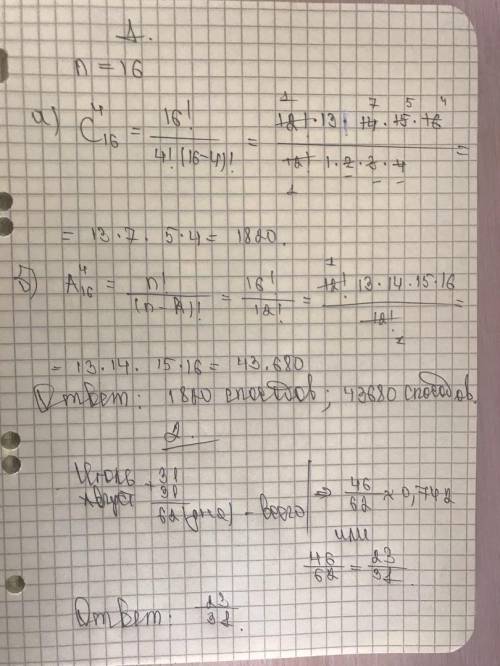 1.
n = 16
а) C₁₆⁴ = 16! / 4!(16-4)! = 12! · 13 · 14 · 15 · 16 / 12! 1 · 2 · 3 · 4 =
1 7 5 4
1
= 13 · 7 · 5 · 4 = 1820.
б) A₁₆⁴ = n! / (n-k)! = 16! / 12! = 12! 13 · 14 · 15 · 16 / 12! =
1
1
= 13 · 14 · 15 · 16 = 43.680
Ответ: 1820 способов; 43680 способов.
2.
Июль 31
Август + 31
62 (дня) - всего ⇒ 46/62 ≈ 0,742
или
46/62 = 23/31.
Ответ: 23/31.